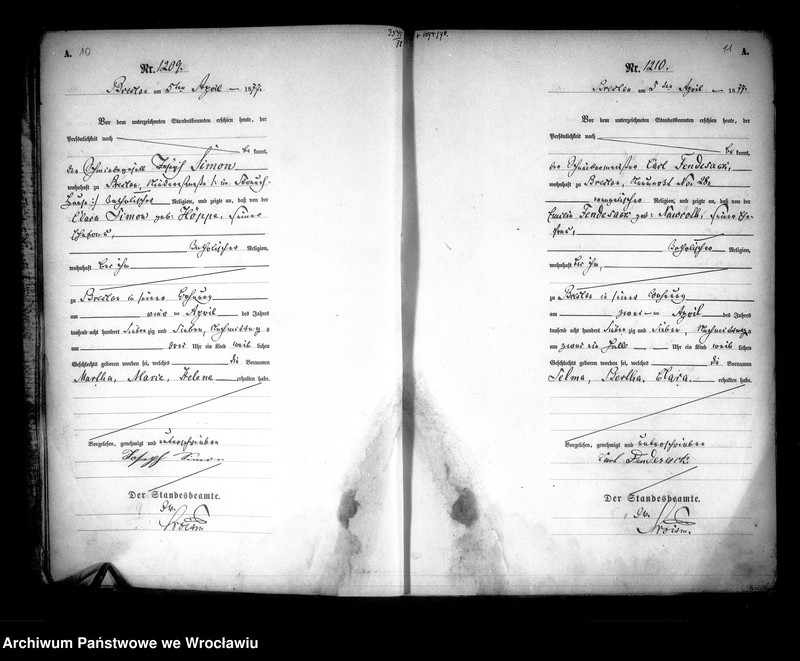 A. 10
Nr. 1209.
Breslau am 5ten April 1877.
Vor dem unterzeichneten Standesbeamten erschien heute, der
Persönlichkeit nach
be kannt,
der Schmiedegesell Joseph Simon
wohnhaft zu Breslau,
katholischer Religion, und zeigte an, daß von der
Clara Simon geb: Hoppe, seiner
Ehefrau,
katholischer Religion,
wohnhaft bei ihm
zu Breslau in seiner Wohnung
am April des Jahres
tausend acht hundert siebenzig und sieben, Nachmittags
um drei Uhr ein Kind weib lichen
Geschlechts geboren worden sei, welches die Vornamen
Martha, Marie, Helene erhalten habe.
Vorgelesen, genehmigt und unterschrieben
Joseph Simon
Der Standesbeamte.
11 A.
Nr. 1210.
Breslau am 5 ten April 1877.
Vor dem unterzeichneten Standesbeamten erschien heute, der
Persönlichkeit nach
be kannt,
der Schneidermeister Carl Fendesack,
wohnhaft zu Breslau, No: 28,
evangelischer Religion, und zeigte an, daß von der
Emilie Fendesack geb: Nawroth, seiner Ehe-
frau,
katholischer Religion,
wohnhaft bei ihm,
zu Breslau in seiner Wohnung
am zwei-n April des Jahres
tausend acht hundert siebenzig und sieben, Nachmittags
um Uhr ein Kind weib lichen
Geschlechts geboren worden sei, welches die Vornamen
Selma, Bertha, Clara erhalten habe.
Vorgelesen, genehmigt und unterschrieben
Carl Fendesack.
Der Standesbeamte.
Archiwum Państwowe we Wrocławiu